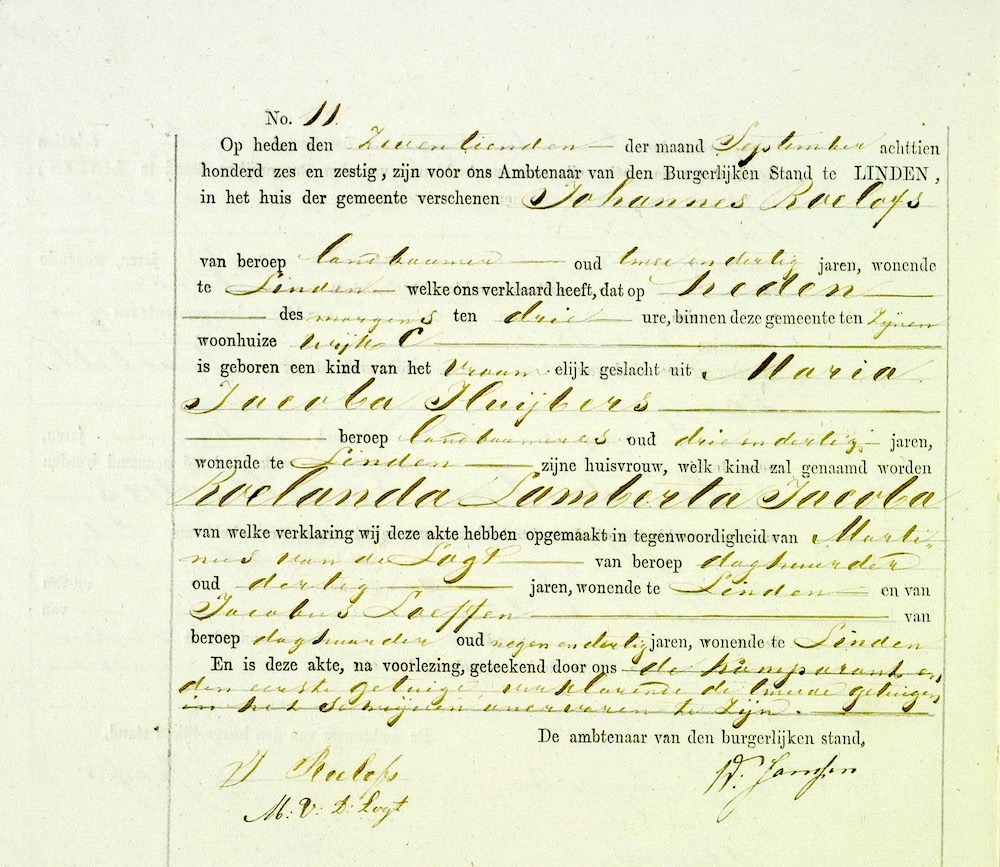 No. 11.
Op heden den Zeventienden der maand September achttien
honderd zes en zestig, zijn voor ons Ambtenaar van den Burgerlijken Stand te LINDEN,
in het huis der gemeente verschenen Johannes Roelofs
van beroep landbouwer oud twee en dertig jaren, wonende
te Linden welke ons verklaard heeft, dat op heden
des morgens ten drie ure, binnen deze gemeente ten zijnen
woonhuize wijk C
is geboren een kind van het vrouwelijk geslacht uit Maria
Jacoba Huijbers
beroep landbouweres oud drie en dertig jaren,
wonende te Linden zijne huisvrouw, welk kind zal genaamd worden
Roelanda Lamberta Jacoba
van welke verklaring wij deze akte hebben opgemaakt in tegenwoordigheid van Marti
nus van de Logt van beroep daghuurder
oud dertig jaren, wonende te Linden en van
Jacobus Loeffen van
beroep daghuurder oud negen en dertig jaren, wonende te Linden
En is deze akte, na voorlezing, geteekend door ons de komparant en
den eerste getuige, verklarende de tweede getuigen
in het schrijven onervaren te zijn.
De ambtenaar van den burgerlijken stand,
J Roelofs W. Janssen
M: V: D: Logt